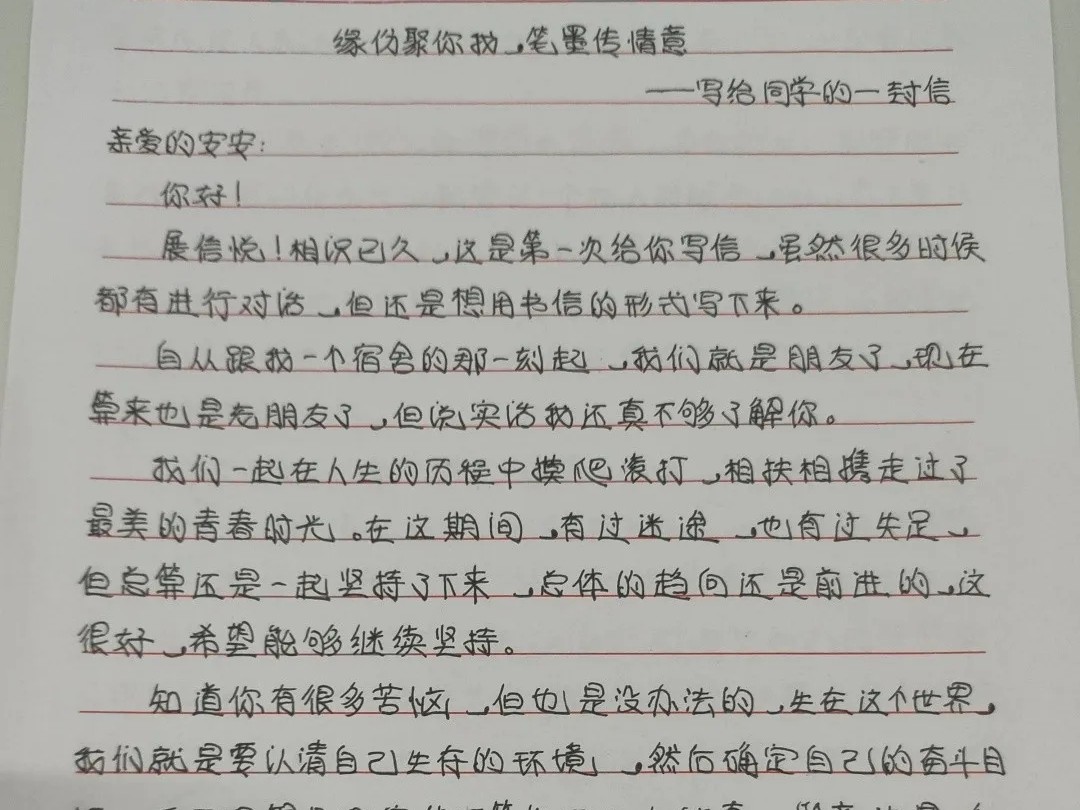 缘份聚你我,笔墨传情意
——写给同学的一封信
亲爱的安安:
你好!
展信悦!相识已久,这是第一次给你写信,虽然很多时候
都有进行对话,但还是想用书信的形式写下来。
自从跟我一个宿舍的那一刻起,我们就是朋友了,现在
算来也是老朋友了,但说实话我还真不够了解你。
我们一起在人生的历程中摸爬滚打,相扶相携走过了
最美的青春时光。在这期间,有过迷途,也有过失足,
但总算还是一起坚持了下来,总体的趋向还是前进的,这
很好,希望能够继续坚持。
知道你有很多苦恼,但也是没办法的,生在这个世界,
我们就是要认清自己生存的环境,然后确定自己的奋斗目